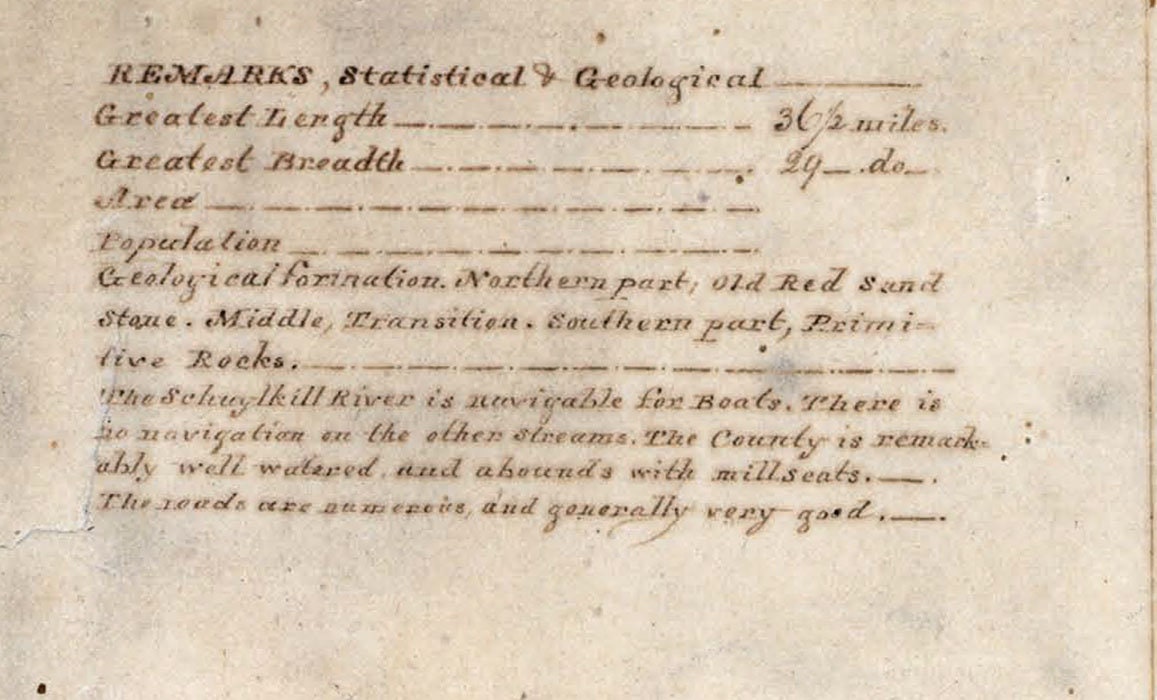 REMARKS, Statistical & Geological
Greatest Length 36 1/2 miles.
Greatest Breadth 29 do
Area
Population
Geological formation. Northern part, Old Red Sand
Stone. Middle, Transition. Southern part, Primi-
tive Rocks.
The Schuylkill River is navigable for Boats. There is
no navigation on the other streams. The County is remark-
ably well watered and abounds with millseats.
The roads are numerous, and generally very good.